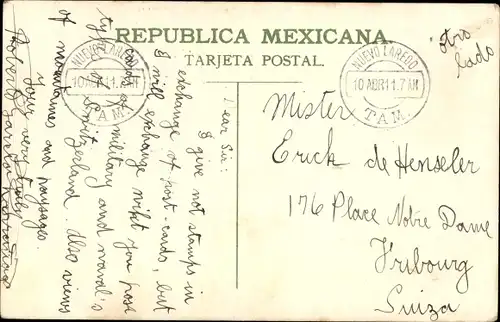 REPUBLICA MEXICANA.
TARJETA POSTAL.
otro
lado
NUEVO LAREDO
10 ABR 11. 7 AM
TAM.
NUEVO LAREDO
10 ABR 11. 7 AM
TAM.
Dear Sir:
I give not stamps in
exchange of post-cards, but
I will exchange whit you pose
cards of military and naval's
typs of Switzerland. Also views
of mountaines and paysages.
Your very truly
Roberto
Mister
Erick de Henseler
176 Place Notre Dame
Fribourg
Suiza